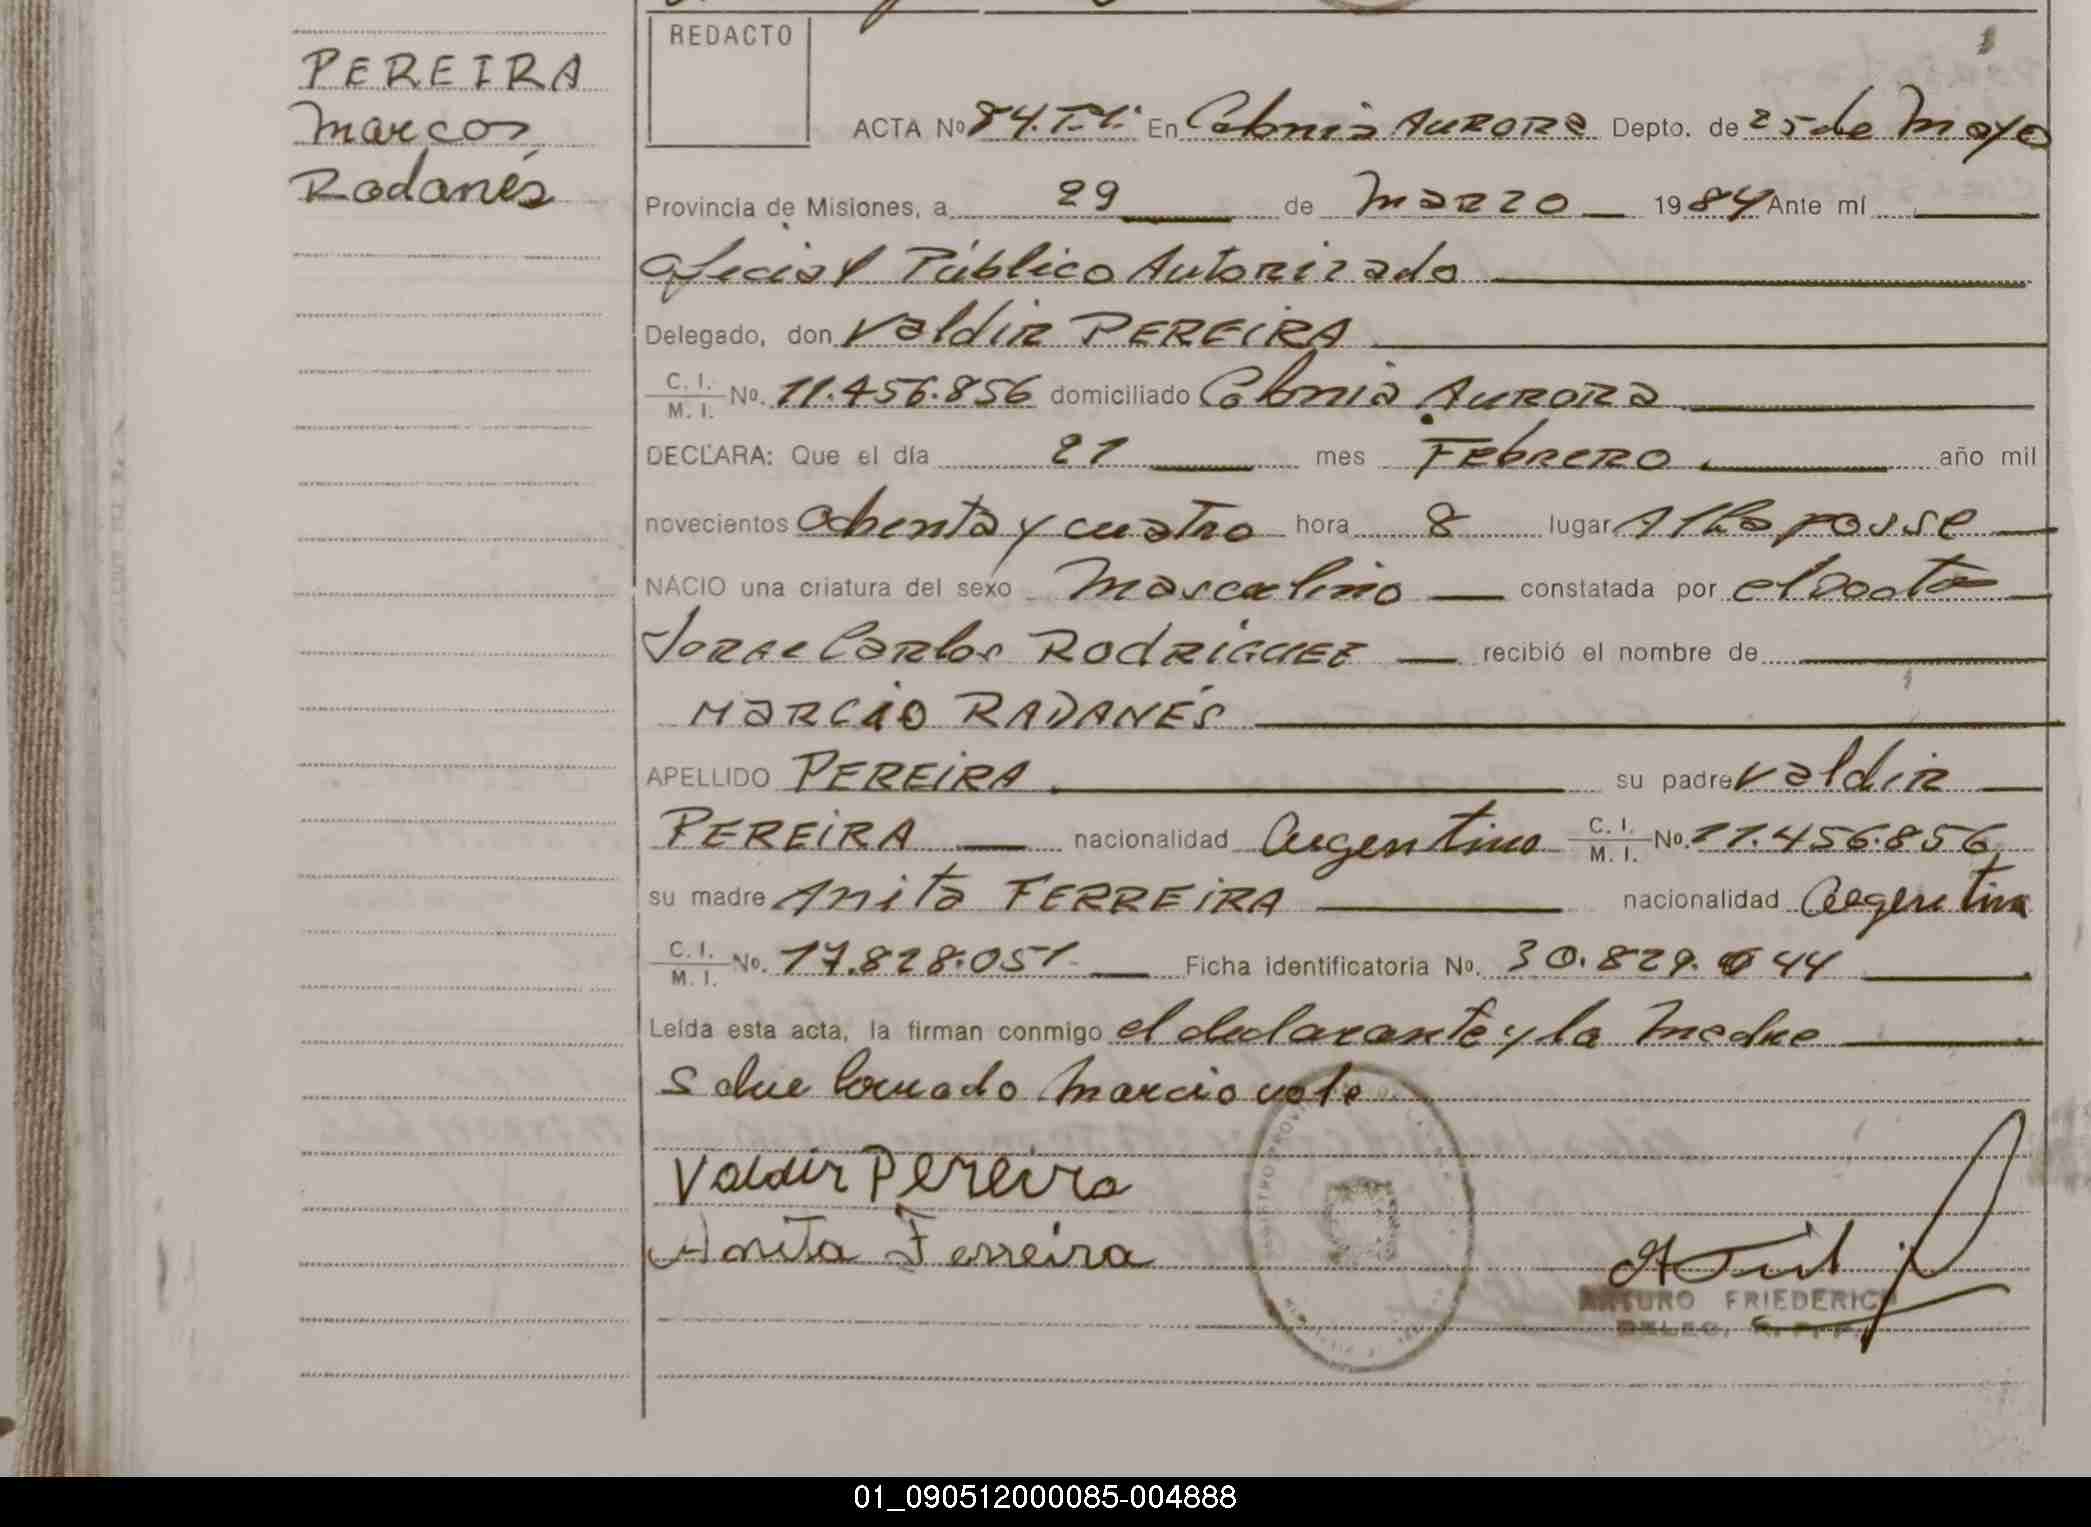 PEREIRA
Marcos
Rodanés
REDACTO
ACTA Nº 84.T.1. En Colonia AURORA Depto. de 25 de Mayo
Provincia de Misiones, a 29 de Marzo 1984 Ante mí
Oficial Público Autorizado
Delegado, don Valdir PEREIRA
C. I. M. I. No. 11.456.856 domiciliado Colonia AURORA
DECLARA: Que el día 21 mes Febrero año mil
novecientos ochenta y cuatro hora 8 lugar Alba posse
NACIO una criatura del sexo Masculino constatada por el Doctor
Jorge Carlos RODRIGUEZ recibió el nombre de
MARCIO RADANÉS
APELLIDO PEREIRA su padre Valdir
PEREIRA nacionalidad Argentino C. I. M. I. No. 11.456.856,
su madre Anita FERREIRA nacionalidad Argentina
C. I. M. I. No. 17.828.051 Ficha identificatoria No. 30.829.044
Leída esta acta, la firman conmigo el declarante y la Madre
Sobre borrado Marcio vale
Valdir Pereira
Anita Ferreira
ARTURO FRIEDERICH
DELEG. R. P. P.
01_090512000085-004888